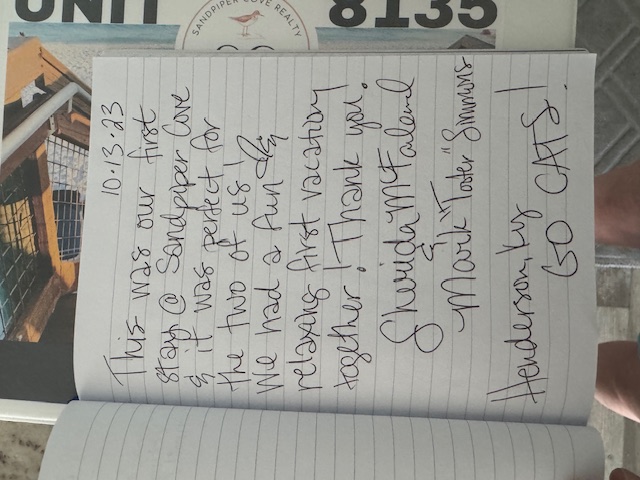 UNIT 8135
SANDPIPER COVE REALTY
10.13.23
This was our first
stay @ Sandpiper Cove
& it was perfect for
the two of us!
We had a fun &
relaxing first vacation
together! Thank you!
Sherida McFalend
&
Mark "Toter" Simmons
Henderson, Ky
GO CATS!